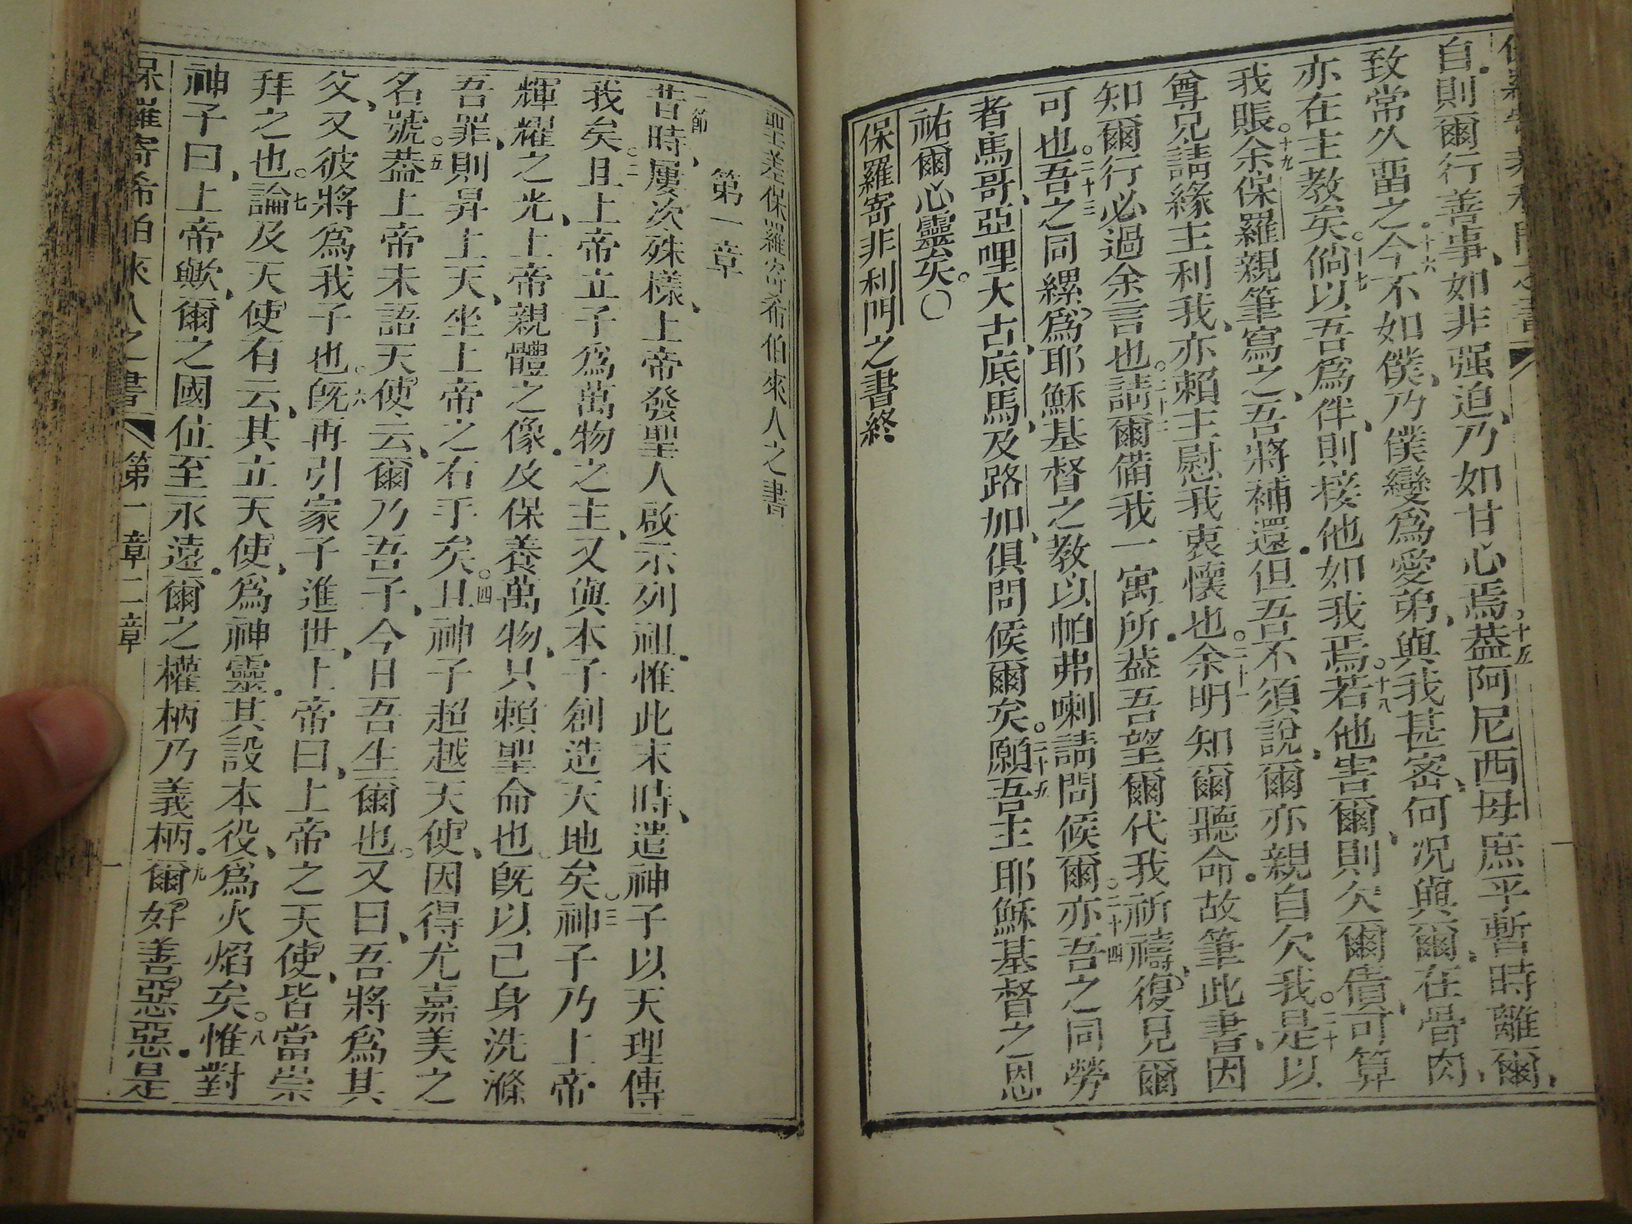 自則爾行善事、如非强迫、乃如甘心焉。十五蓋阿尼西母庶乎暫時離爾、
致常久畱之。十六今不如僕、乃僕變爲愛弟、與我甚密、何况與爾、在骨肉、
亦在主教矣。十七倘以吾爲伴、則接他如我焉。十八若他害爾、則欠爾債、可算
我賬。十九余保羅親筆寫之、吾將補還、但吾不須說、爾亦親自欠我。二十是以
尊兄請緣主利我、亦賴主慰我衷懷也。二十一余明知爾聽命、故筆此書、因
知爾行必過余言也。二十二請爾備我一寓所、蓋吾望爾代我祈禱、復見爾
可也。二十三吾之同縲、爲耶穌基督之教、以帕弗喇請問候爾。二十四亦吾之同勞
者馬哥、亞哩大古、底馬、及路加、俱問候爾矣。二十五願吾主耶穌基督之恩
祐爾心靈矣。〇
保羅寄非利門之書終
聖差保羅寄希伯來人之書
第一章
一節昔時、屢次殊樣、上帝發聖人啟示列祖。惟此末時、遣神子以天理傳
我矣。二且上帝立子爲萬物之主、又與本子創造天地矣。三神子乃上帝
輝耀之光、上帝親體之像、及保養萬物、只賴聖命也。旣以己身洗滌
吾罪、則昇上天、坐上帝之右手矣。四且神子超越天使、因得尤嘉美之
名號。五蓋上帝未語天使云、爾乃吾子、今日吾生爾也。又曰、吾將爲其
父、又彼將爲我子也。六旣再引家子進世、上帝曰、上帝之天使、皆當崇
拜之也。七論及天使有云、其立天使、爲神靈。其設本役、爲火焰矣。八惟對
神子曰、上帝歟、爾之國位至永遠。爾之權柄乃義柄。九爾好善惡惡。是
保羅寄希伯來人之書 第一章二章 一